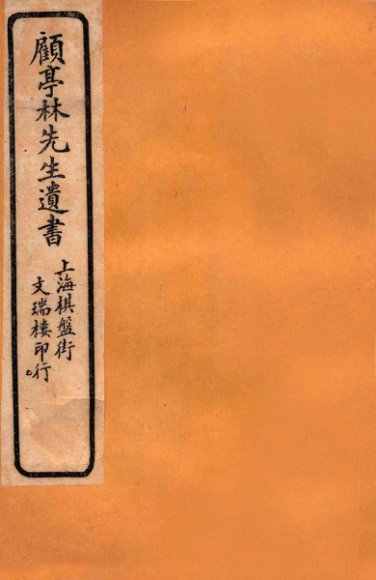 顧亭林先生遺書
上海棋盤街
文瑞樓印行